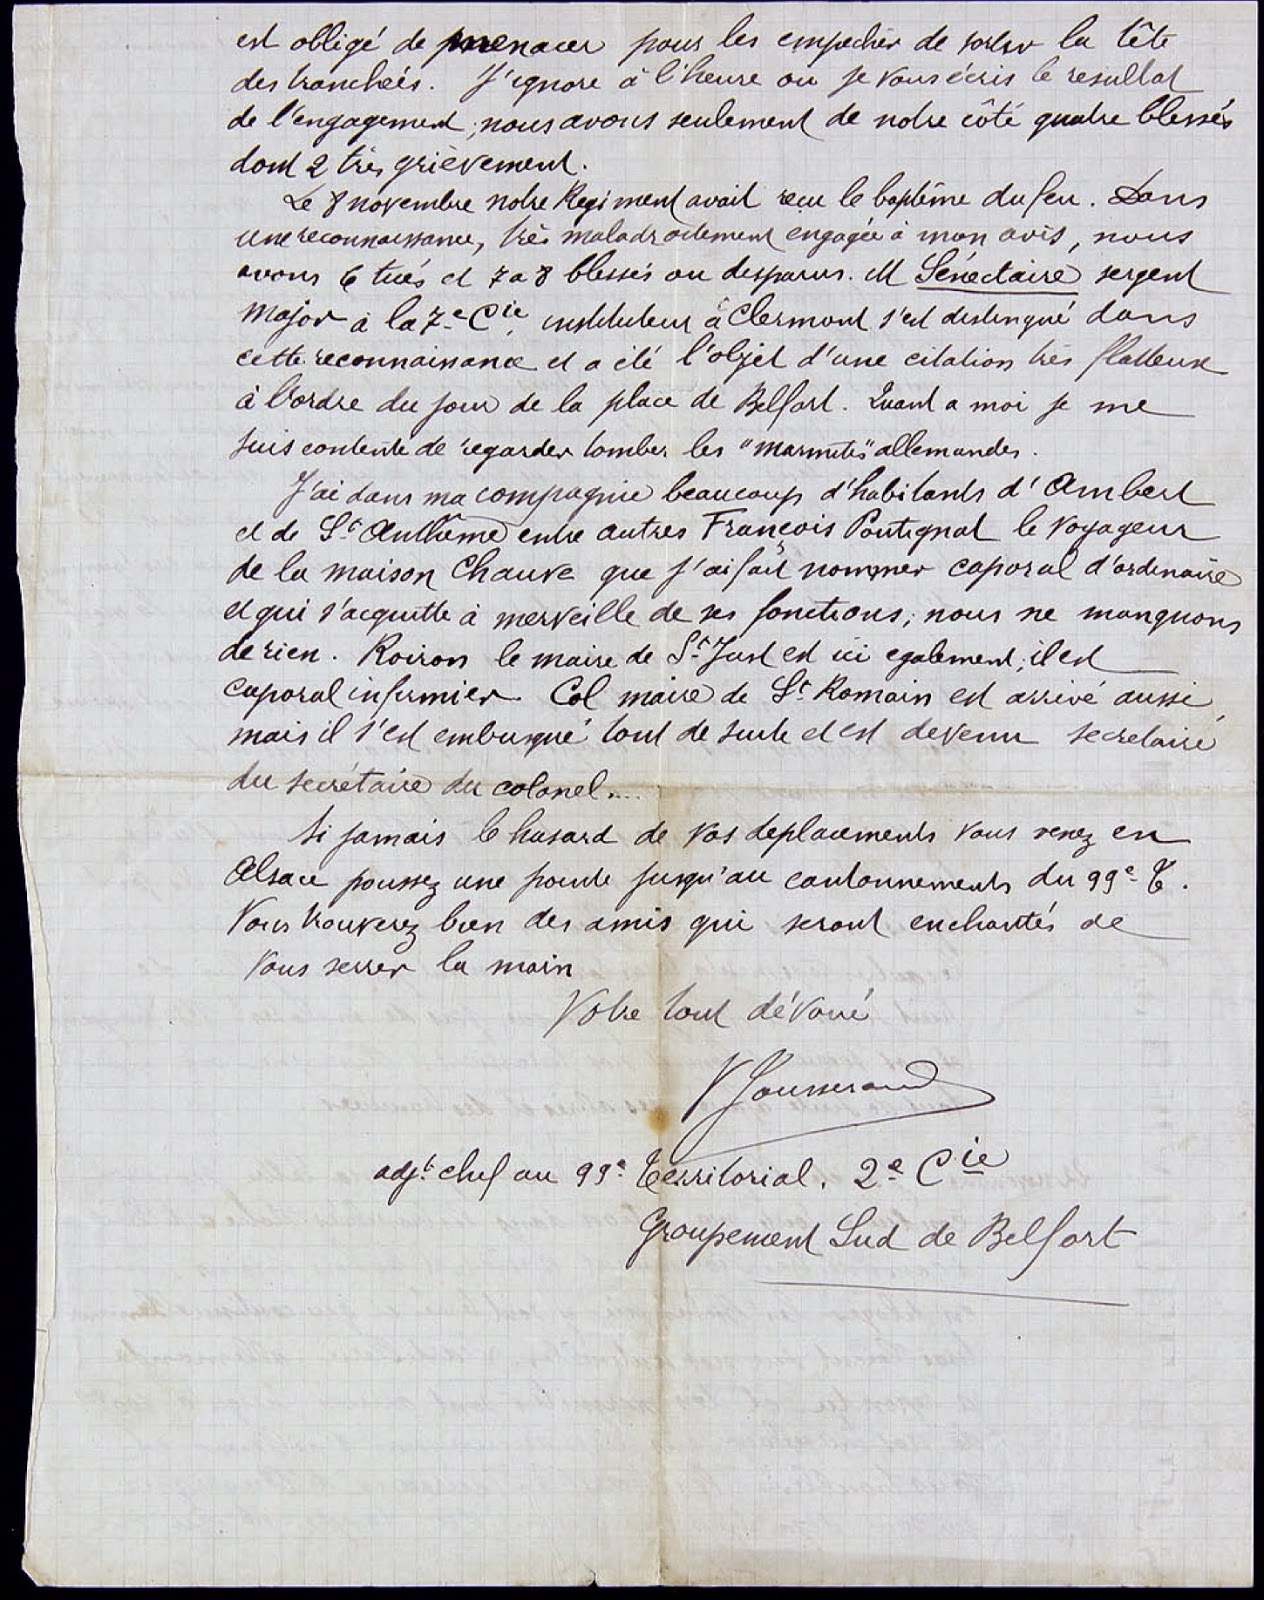 est obligé de menacer pour les empêcher de sortir la tête
des tranchées. J'ignore à l'heure ou je vous écris le résultat
de l'engagement, nous avons seulement de notre côté quatre blessés
dont 2 très grièvement.
Le 8 novembre notre Régiment avait reçu le baptême du feu. Dans
une reconnaissance, très maladroitement engagée à mon avis, nous
avons 6 tués et 7 a 8 blessés ou disparus. M Sénectaire sergent
major à la 7e Cie, instituteur à Clermont s'est distingué dans
cette reconnaissance et a été l'objet d'une citation très flatteuse
à l'ordre du jour de la place de Belfort. Quant a moi je me
suis contenté de regarder tomber les "marmites" allemandes.
J'ai dans ma compagnie beaucoup d'habitants d'Ambert
et de St Anthême entre autres François Pontignat le voyageur
de la maison Chauve que j'ai fait nommer caporal d'ordinaire
et qui s'acquitte à merveille de ses fonctions; nous ne manquons
de rien. Roiron le maire de St Just est ici egalement; il est
caporal infirmier. Col maire de St Romain est arrivé aussi,
mais il s'est embusqué tout de suite et est devenu secretaire
du secrétaire du colonel....
Si jamais le hasard de vos deplacements vous venez en
Alsace poussez une pointe jusqu'au cantonnements du 99e T.
Vous trouverez bien des amis qui seront enchantés de
vous serrer la main
Votre tout dévoué
V Jousserand
adjt chef au 99e Territorial. 2e Cie
Groupement Sud de Belfort